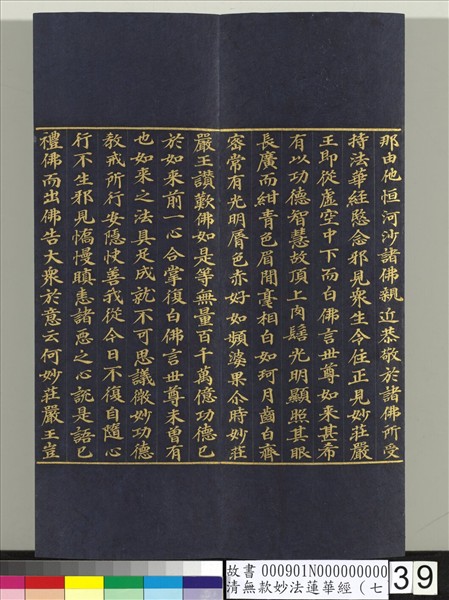 那由他恒河沙諸佛親近恭敬於諸佛所受
持法華經愍念邪見衆生令住正見妙莊嚴
王即從虚空中下而白佛言世尊如來甚希
有以功德智慧故頂上肉髻光明顯照其眼
長廣而紺青色眉間毫相白如珂月齒白齊
密常有光明脣色赤好如頻婆果尒時妙莊
嚴王讃歎佛如是等無量百千萬億功德已
於如来前一心合掌復白佛言世尊未曾有
也如来之法具足成就不可思議微妙功德
教戒所行安隱快善我從今日不復自隨心
行不生邪見憍慢瞋恚諸惡之心說是語已
禮佛而出佛告大衆於意云何妙莊嚴王豈
故書 000901N000000000
清無款妙法蓮華經（七
39